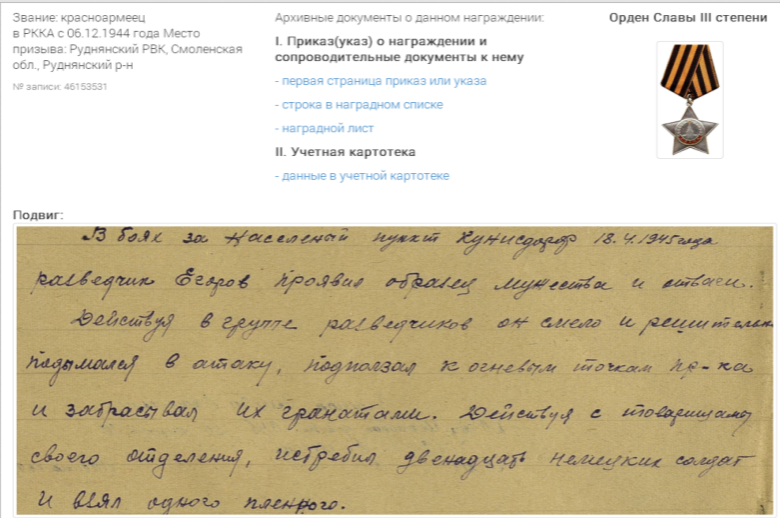 Звание: красноармеец
в РККА с 06.12.1944 года Место
призыва: Руднянский РВК, Смоленская
обл., Руднянский р-н
№ записи: 46153531
Архивные документы о данном награждении:
I. Приказ(указ) о награждении и
сопроводительные документы к нему
- первая страница приказ или указа
- строка в наградном списке
- наградной лист
II. Учетная картотека
- данные в учетной картотеке
Орден Славы III степени
Подвиг:
В боях за населеный пункт Кунисдорф 18.4.1945 года
разведчик Егоров проявил образец мужества и отваги.
Действуя в группе разведчиков он смело и решительн
подымался в атаку, подползал к огневым точкам пр-ка
и забрасывал их гранатами. Действуя с товарищами
своего отделения, истребил двенадцать немецких солдат
и взял одного пленного.